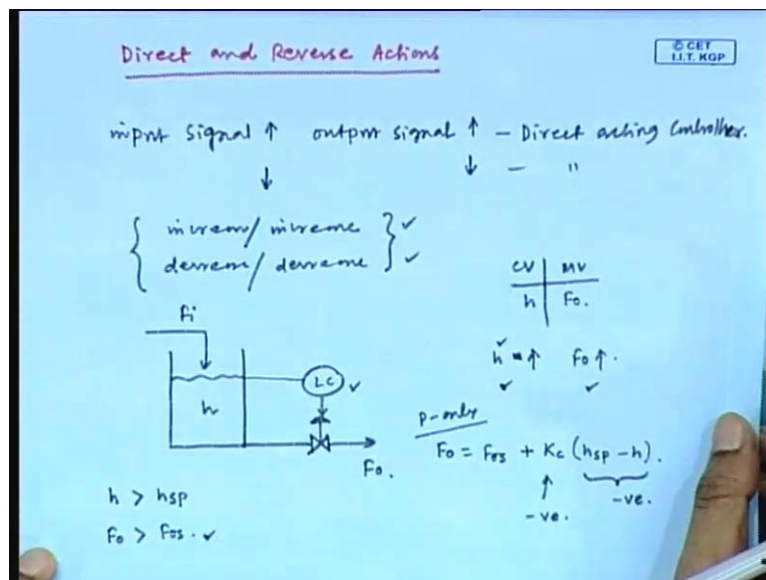 Direct and Reverse Actions
© CET
I.I.T. KGP
input signal ↑ output signal ↑ - Direct acting Controller.
↓ ↓ - "
{ increase/increase } ✓
{ decrease/decrease } ✓
CV | MV
h | Fo.
Fi
h
LC ✓
Fo.
h = ↑ Fo ↑.
✓ ✓ ✓
P-only
Fo = Fos + Kc (hsp - h).
↑ -ve.
-ve.
h > hsp
Fo > Fos. ✓